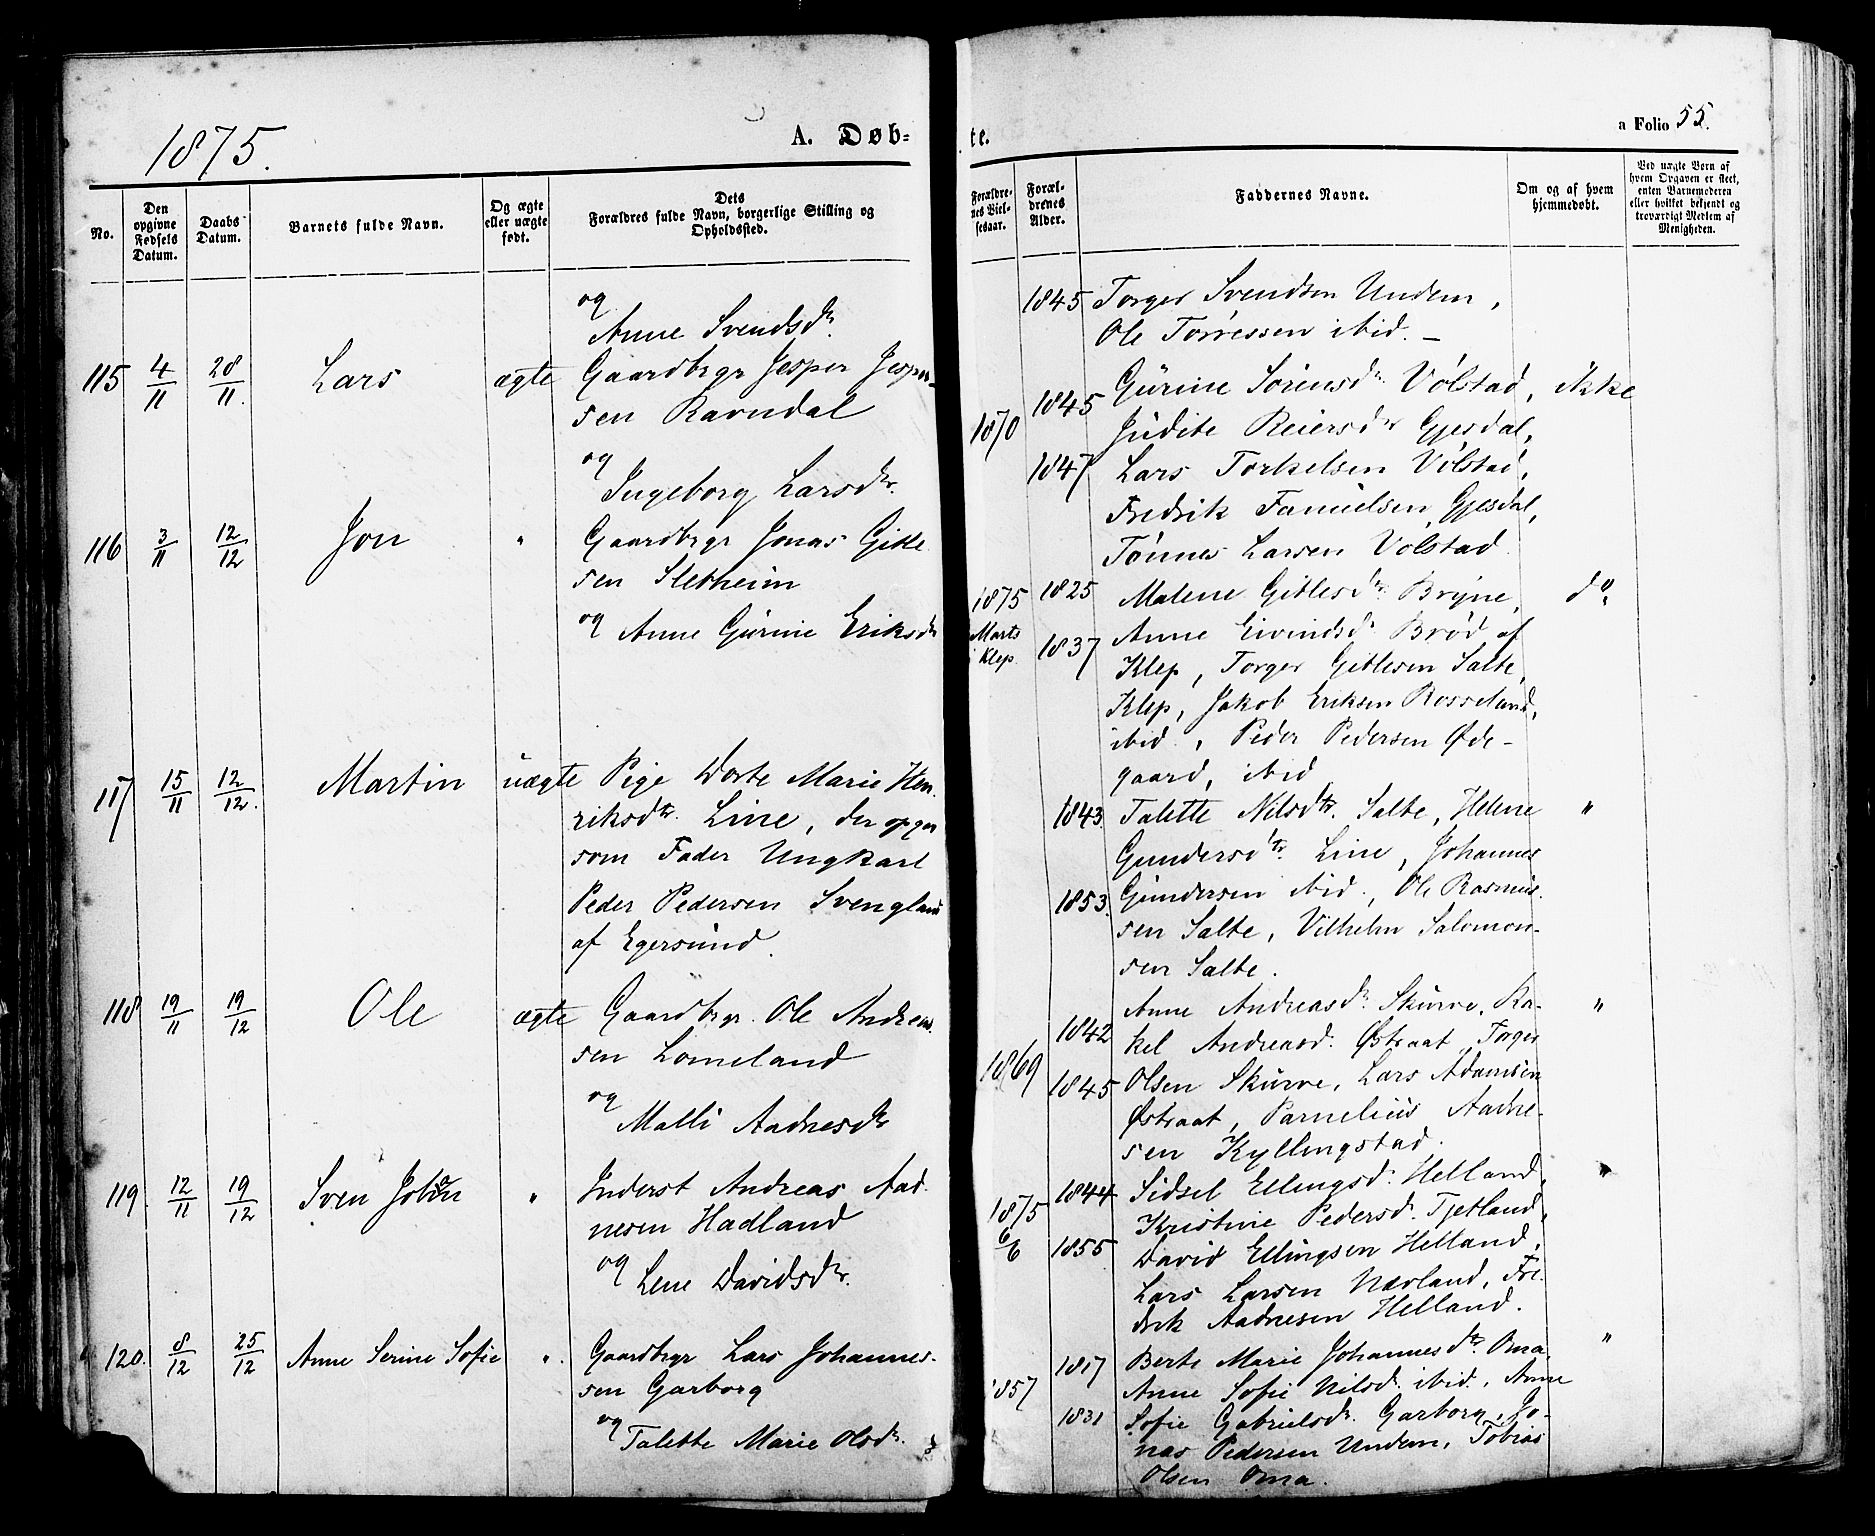 1875.
A. Døb-
No.
Den opgivne Fødsels Datum.
Daabs Datum.
Barnets fulde Navn.
Og ægte eller uægte født.
Dets Forældres fulde Navn, borgerlige Stilling og Opholdssted.
og
Anne Svendsdr.
115 4/11 28/11. Lars ægte Gaardbrgr Jesper Jesper-
sen Ravndal
og
Ingeborg Larsdr.
116 3/11 12/12 Jon " Gaardbrgr Jonas Gitle
sen Sletheim
og Anne Gurine Eriksdr
117 15/11 12/12. Martin uægte Pige Dorte Marie Hen-
riksdtr. Line, der opger
som Fader Ungkarl
Peder Pedersen Svengland
af Egersund.
118 19/11 19/12 Ole ægte Gaardbrgr. Ole Andreas
sen Lomeland
og
Malli Aadnesdr
119 12/11 19/12 Sven Johan " Inderst Andreas Aad-
nesen Hadland
og
Lene Davidsdr.
120. 8/12 25/12 Anne Serine Sofie " Gaardbrgr Lars Johannes-
sen Garborg
og Talette Marie Olsdr.
te.
a Folio 55.
Forældrenes Vielsesaar.
Forældrenes Alder.
Faddernes Navne.
Om og af hvem hjemmedøbt.
Ved uægte Børn af hvem Opgaven er skeet, enten Barnemoderen eller hvilket bekjendt og troværdigt Medlem af Menigheden.
1845 Torger Svendsen Undem,
Ole Torressen ibid. –
1870 1845 Gurine Sørensdr Volstad, ikke
Judite Reiersdr Gjesdal,
1847 Lars Torkelsen Volstad,
Fredrik Samuelsen Gjesdal,
Tønnes Larsen Volstad
1875 1825 Malene Gitlesdr. Bryne, do.
Marts 1837 Anne Eivindsdr Brød af
i Klep. Klep, Torger Gitlesen Salte,
Klep, Jakob Eriksen Rosseland,
ibid., Peder Pedersen Øde-
gaard, ibid
1843. Talette Nilsdtr. Salte, Helene "
Gundersdtr. Line, Johannes
1853. Gundersen ibid., Ole Rasmus-
sen Salte, Vilhelm Salomon-
sen Salte.
Anne Andreasdr. Skurve, Ra- "
1842 kel Andreasd. Østraat, Torger
1869 1845 Olsen Skurve, Lars Adamsen
Østraat, Parnelius Aadne-
sen Kyllingstad.
1844 Sidsel Ellingsd. Helland, "
1875 Kristine Pedersd. Tjetland,
6/6 1855 David Ellingsen Helland,
Lars Larsen Nærland, Fre-
drik Aadnesen Helland.
1817 Berte Marie Johannesdtr. Oma, "
1857 Anne Sofie Nilsd. ibid., Anne
1831 Sofie Gabrielsdr. Garborg, Jo-
nas Pedersen Undem, Tobias
Olsen Oma.